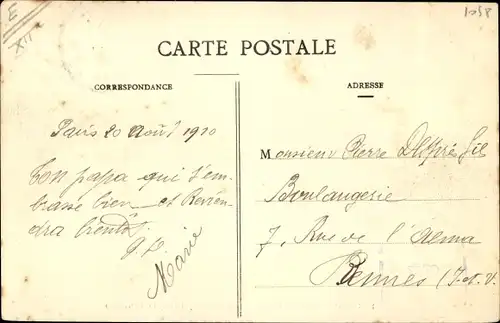 E
XII
1058
CARTE POSTALE
CORRESPONDANCE
ADRESSE
Paris 20 Août 1910
Ton papa qui t'em
brasse bien et Revien
dra bientôt
Marie
Monsieur Pierre
Boulangerie
7, Rue de l'Alma
Rennes (I-et-V.